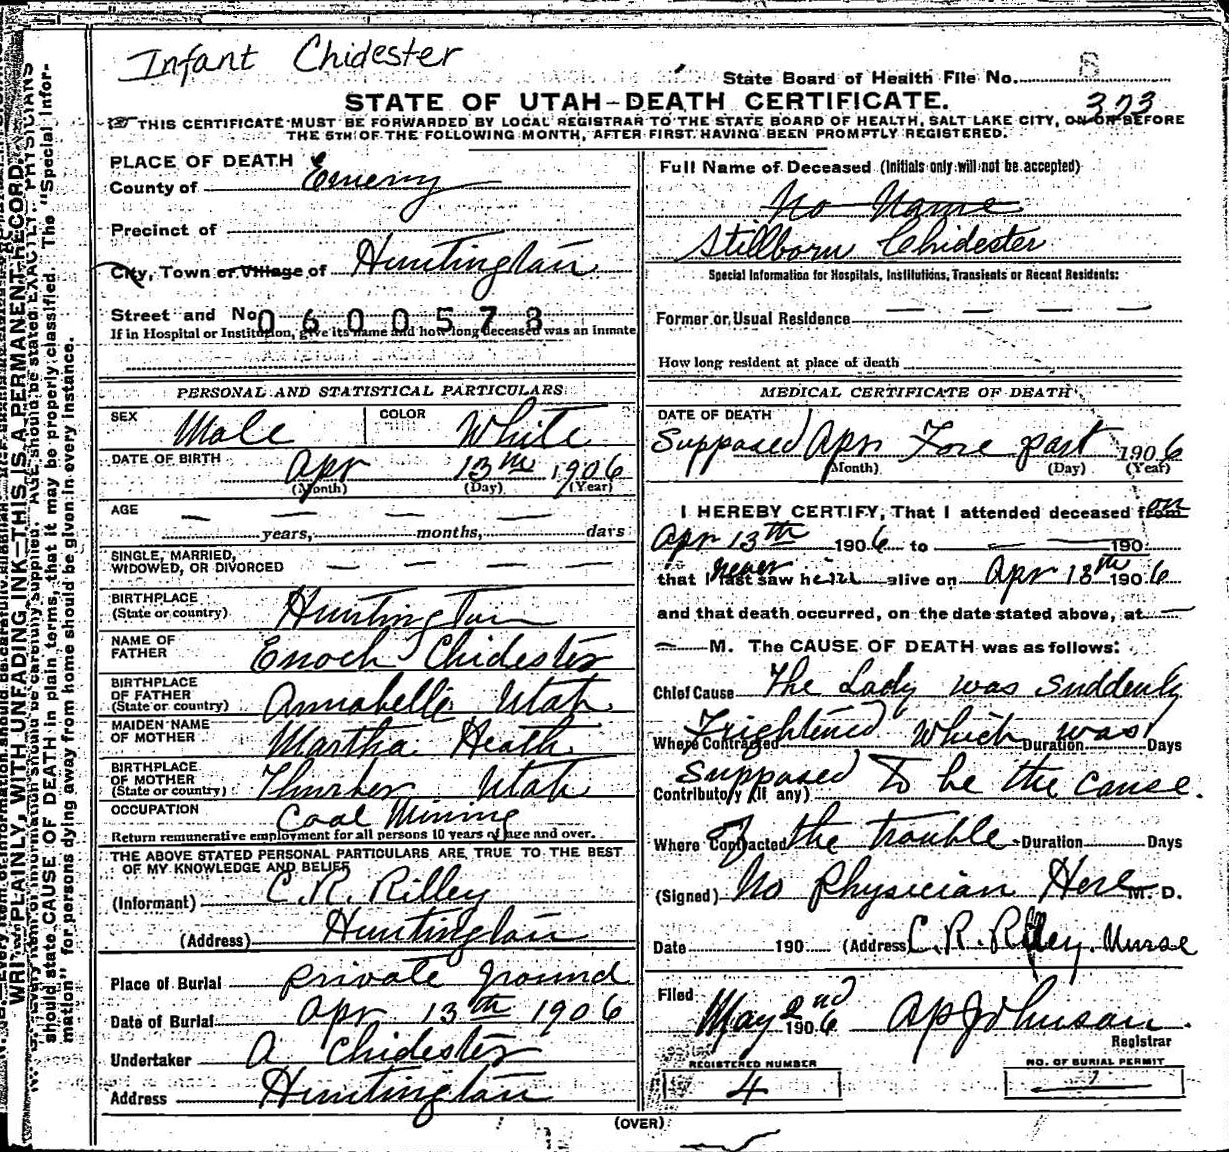 Infant Chidester
State Board of Health File No.
STATE OF UTAH-DEATH CERTIFICATE. 373
THIS CERTIFICATE MUST BE FORWARDED BY LOCAL REGISTRAR TO THE STATE BOARD OF HEALTH, SALT LAKE CITY, ON OR BEFORE
THE 5TH OF THE FOLLOWING MONTH, AFTER FIRST HAVING BEEN PROMPTLY REGISTERED.
PLACE OF DEATH
County of Emery
Precinct of
City, Town or Village of Huntington
Street and No.
0600573
If in Hospital or Institution, give its name and how long deceased was an inmate
PERSONAL AND STATISTICAL PARTICULARS
SEX Male COLOR White
DATE OF BIRTH Apr 13th 1906
(Month) (Day) (Year)
AGE
years, months, days
SINGLE, MARRIED,
WIDOWED, OR DIVORCED
BIRTHPLACE
(State or country) Huntington
NAME OF
FATHER Enoch Chidester
BIRTHPLACE
OF FATHER
(State or country) Annabelle Utah
MAIDEN NAME
OF MOTHER Martha Heath
BIRTHPLACE
OF MOTHER
(State or country) Thurber Utah
OCCUPATION Coal Mining
Return remunerative employment for all persons 10 years of age and over.
THE ABOVE STATED PERSONAL PARTICULARS ARE TRUE TO THE BEST
OF MY KNOWLEDGE AND BELIEF
(Informant) C. R. Rilley
(Address) Huntington
Place of Burial private ground
Date of Burial Apr 13th 1906
Undertaker A Chidester
Address Huntington
Full Name of Deceased (Initials only will not be accepted)
No Name
Stillborn Chidester
Special Information for Hospitals, Institutions, Transients or Recent Residents:
Former or Usual Residence
How long resident at place of death
MEDICAL CERTIFICATE OF DEATH
DATE OF DEATH
Supposed Apr Fore part 1906
(Month) (Day) (Year)
I HEREBY CERTIFY, That I attended deceased from on
Apr 13th 1906 to 190
that I last never saw him alive on Apr 13th 1906
and that death occurred, on the date stated above, at
M. The CAUSE OF DEATH was as follows:
Chief Cause The Lady was suddenly
Frightened which was
Where Contracted Duration Days
Supposed To be the cause.
Contributory (If any)
Of the trouble
Where Contracted Duration Days
(Signed) No Physician Here M. D.
Date 190 (Address) C. R. Rilley. Nurse
Filed May 2nd 1906 A P Johnson.
Registrar
REGISTERED NUMBER
4
NO. OF BURIAL PERMIT
1
(OVER)
WRITE PLAINLY, WITH UNFADING INK-THIS IS A PERMANENT RECORD.
N. B.-Every item of information should be carefully supplied. AGE should be stated EXACTLY. PHYSICIANS
should state CAUSE OF DEATH in plain terms, that it may be properly classified. The "Special Infor-
mation" for persons dying away from home should be given in every instance.